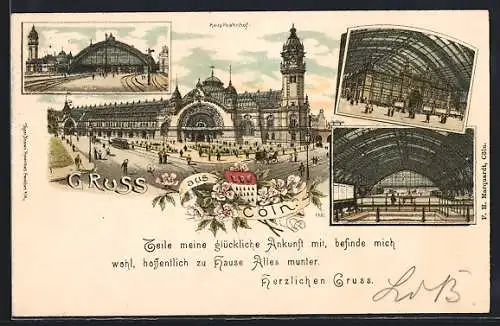 Hauptbahnhof.
GRUSS
aus
Cöln.
Teile meine glückliche Ankunft mit, befinde mich
wohl, hoffentlich zu Hause Alles munter.
Herzlichen Gruss.
F. H. Marquardt, Cöln.